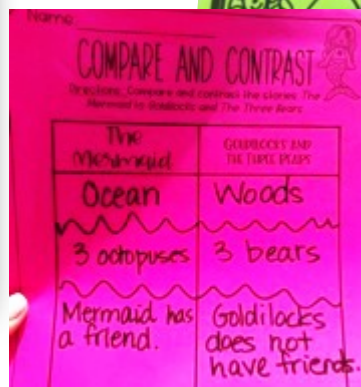 Name
COMPARE AND CONTRAST
Directions: Compare and contrast the stories The
Mermaid to Goldilocks and The Three Bears
The
Mermaid
GOLDILOCKS AND
THE THREE BEARS
Ocean
Woods
3 octopuses
3 bears
Mermaid has
a friend.
Goldilocks
does not
have friends.